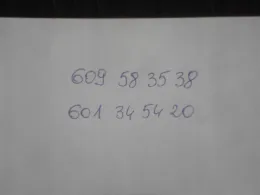 609 58 35 38
601 34 54 20